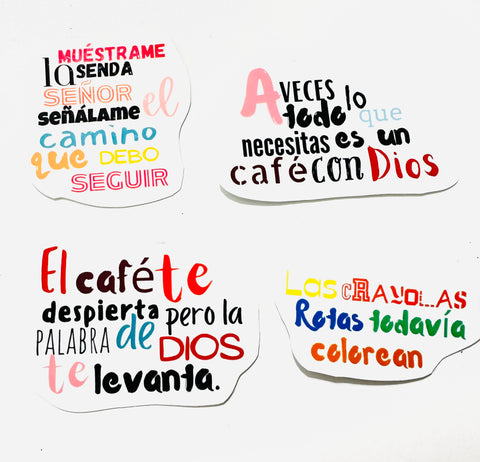 MUÉSTRAME
la SENDA
SEÑOR
SEÑÁLAME el
camino
que DEBO
SEGUIR
A VECES
todo lo que
necesitas es un
café con Dios
El café te
despierta pero la
PALABRA de DIOS
te levanta.
LAS CRAYOLAS
Rotas todavía
colorean